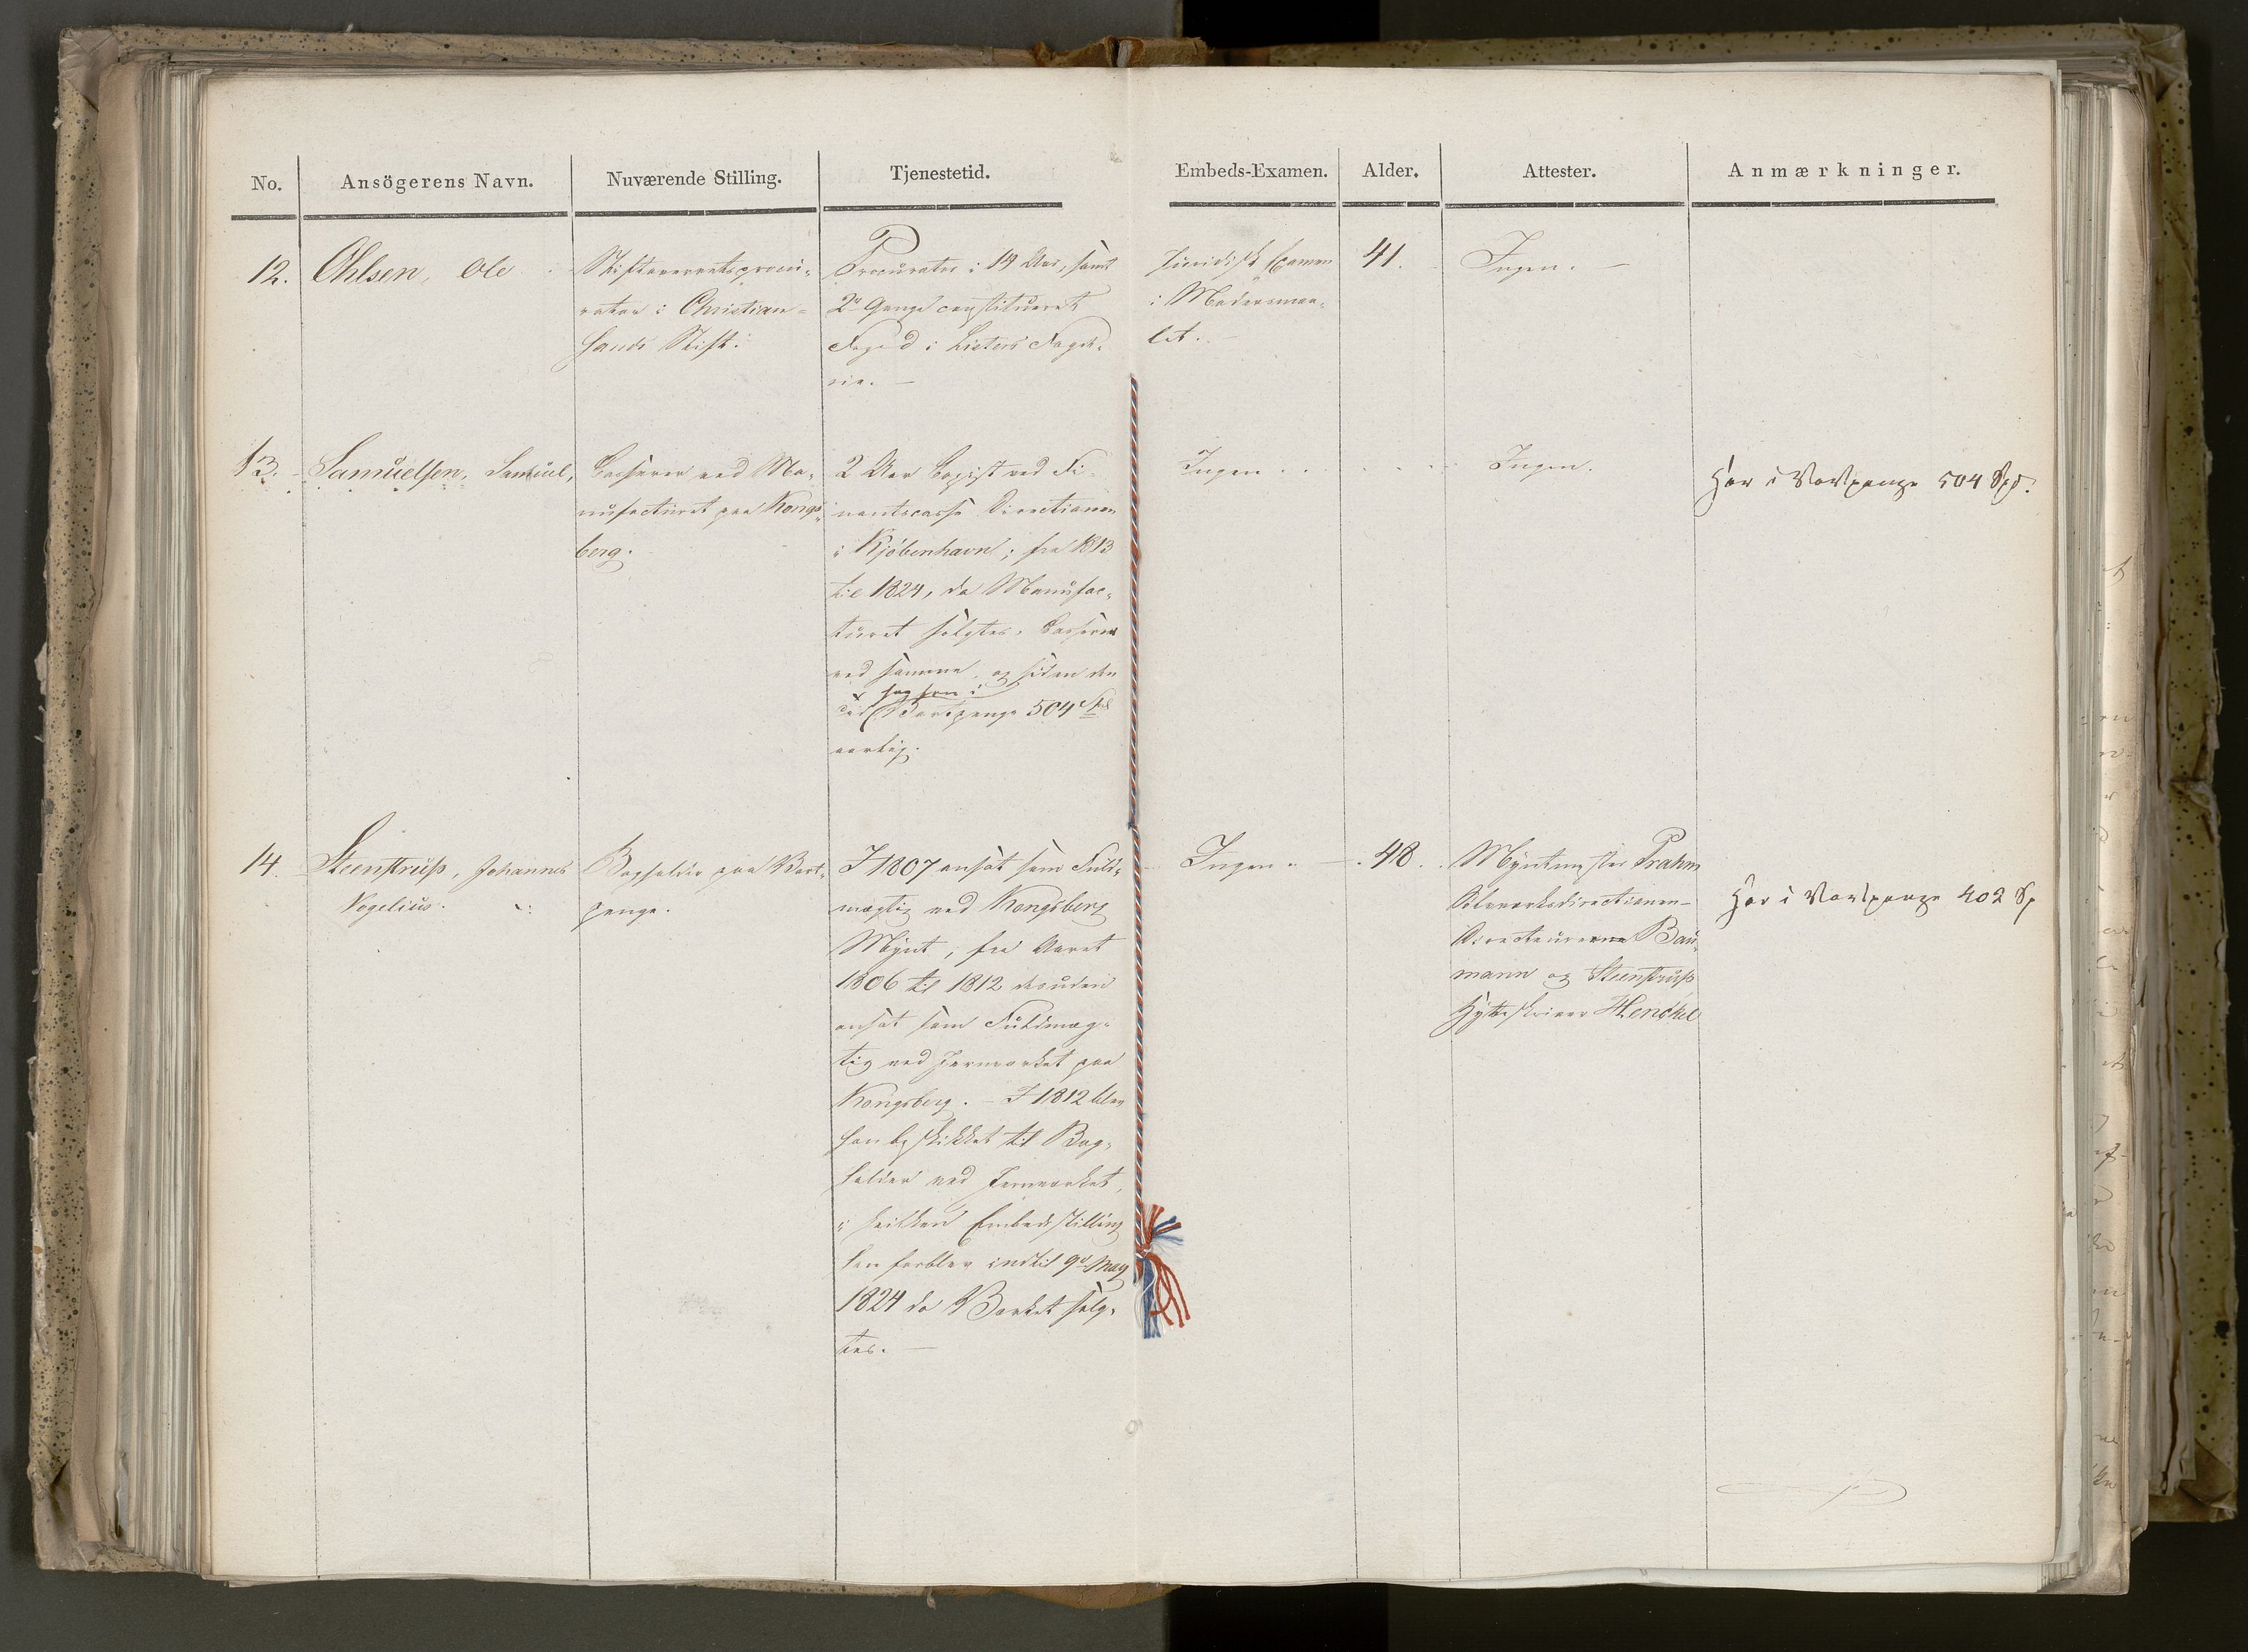 No. Ansögerens Navn. Nuværende Stilling. Tjenestetid. Embeds-Examen. Alder. Attester. Anmærkninger.
12. Ohlsen, Ole
Stiftsoverretsprocu-
rator i Christian-
sands Stift.
Procurator i 19 Aar, samt
2de Gange constitueret
Foged i Listers Fogde-
rie. —
Juridisk Examen
i Modersmaa-
let. —
41.
Ingen. —
13. Samuelsen, Samuel,
Casserer ved Ma-
nufacturet paa Kongs-
berg.
2 Aar Copist ved Fi-
nantscasse Directionen
i Kjøbenhavn; fra 1813
til 1824, da Manufac-
turet solgtes, Casserer
ved samme, og siden den
Tid
Vartpenge 504 Spd
aarlig.
Ingen
Ingen.
Har i Vartpenge 504 Spd.
14. Steenstrup, Johannes
Vogelius.
Bogholder paa Vart-
penge.
I 1807 ansat som Fuld-
mægtig ved Kongsberg
Mynt, fra Aaret
1806 til 1812 desuden
ansat som Fuldmæg-
tig ved Jernværket paa
Kongsberg. – I 1812 blev
han beskikket til Bog-
holder ved Jernværket,
i hvilken Embedsstilling
han forblev indtil 9de May
1824 da Værket solg-
tes. —
Ingen. —
48.
Myntmester Prahm
Sølvværksdirectionen –
Directeurerne Bau-
mann og Steenstrup
Hytteskriver Henckel
Har i Vartpenge 402 Sp